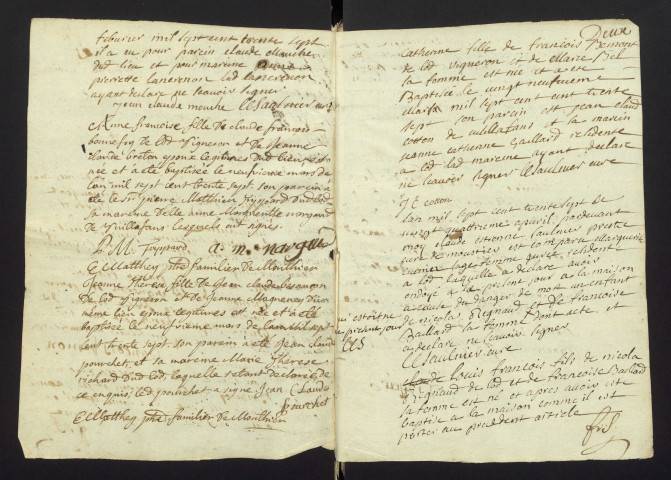 febvrier mil sept cent trente sept
il a eu pour parein claude Mouche
dud lieu et pour mareine
pierrette lanernon lad lanernon
ayant declaré ne scavoir signer
jean claude mouche C Saulnier curé
Anne francoise fille de claude francois
bonnefoy de Lod vigneron et de Jeanne
claude breton epoux legitimes dud lieu est
née et a été baptisée le neufvieme mars de
l'an mil sept cent trente sept son parein a
été le Sr pierre Matthieu Joppard dud lod
sa mareine delle anne Marguerite
de Vuillafans lesquels ont signés
P. M. Joppard a. m.
E Matthey ptre familier de Monthier
Jeanne Therese fille de Jean claude besancon
de Lod vigneron et de Jeanne Magnenet d'un
même lieu epoux legitimes est née et a été
baptisée le neufvieme mars de l'an mil sept
cent trente sept son parein a été Jean claude
pourchet, et sa mareine Marie Therese
richard dud lod, laquelle
ce enquis led pourchet a signé Jean Claude
pourchet
E Matthey ptre familier de Monthier
Deux
Catherine fille de francois Bennoit
de lod vigneron et de claire Bel
sa femme est née et a été
Baptisée le vingt neufvieme
mil sept cent trente
sept son parein est jean claud
cotton de vuillafans et la marein
jeanne estienne Gaillard residente
a lod lad mareine ayant declaré
ne scavoir signer C Saulnier curé
J C cotton
L'an mil sept cent trente sept le
vingt quatrieme apvril pardevant
moy claude estienne Saulnier prestre
curé de moustier est comparu Marguerite
sage femme residente
a lod laquelle a declaré avoir
ondoyé a la maison
a cause du danger de mort un enfant
de nicola Regnaud et de francoise
Baillard sa femme dont acte et
a declaré ne scavoir signer
C Saulnier curé
CES
Louis francois fils de nicola
Regnaud de lod et de francoise Baillard
sa femme est né et apres avoir esté
baptisé a la maison comme il est
porté au precedent article